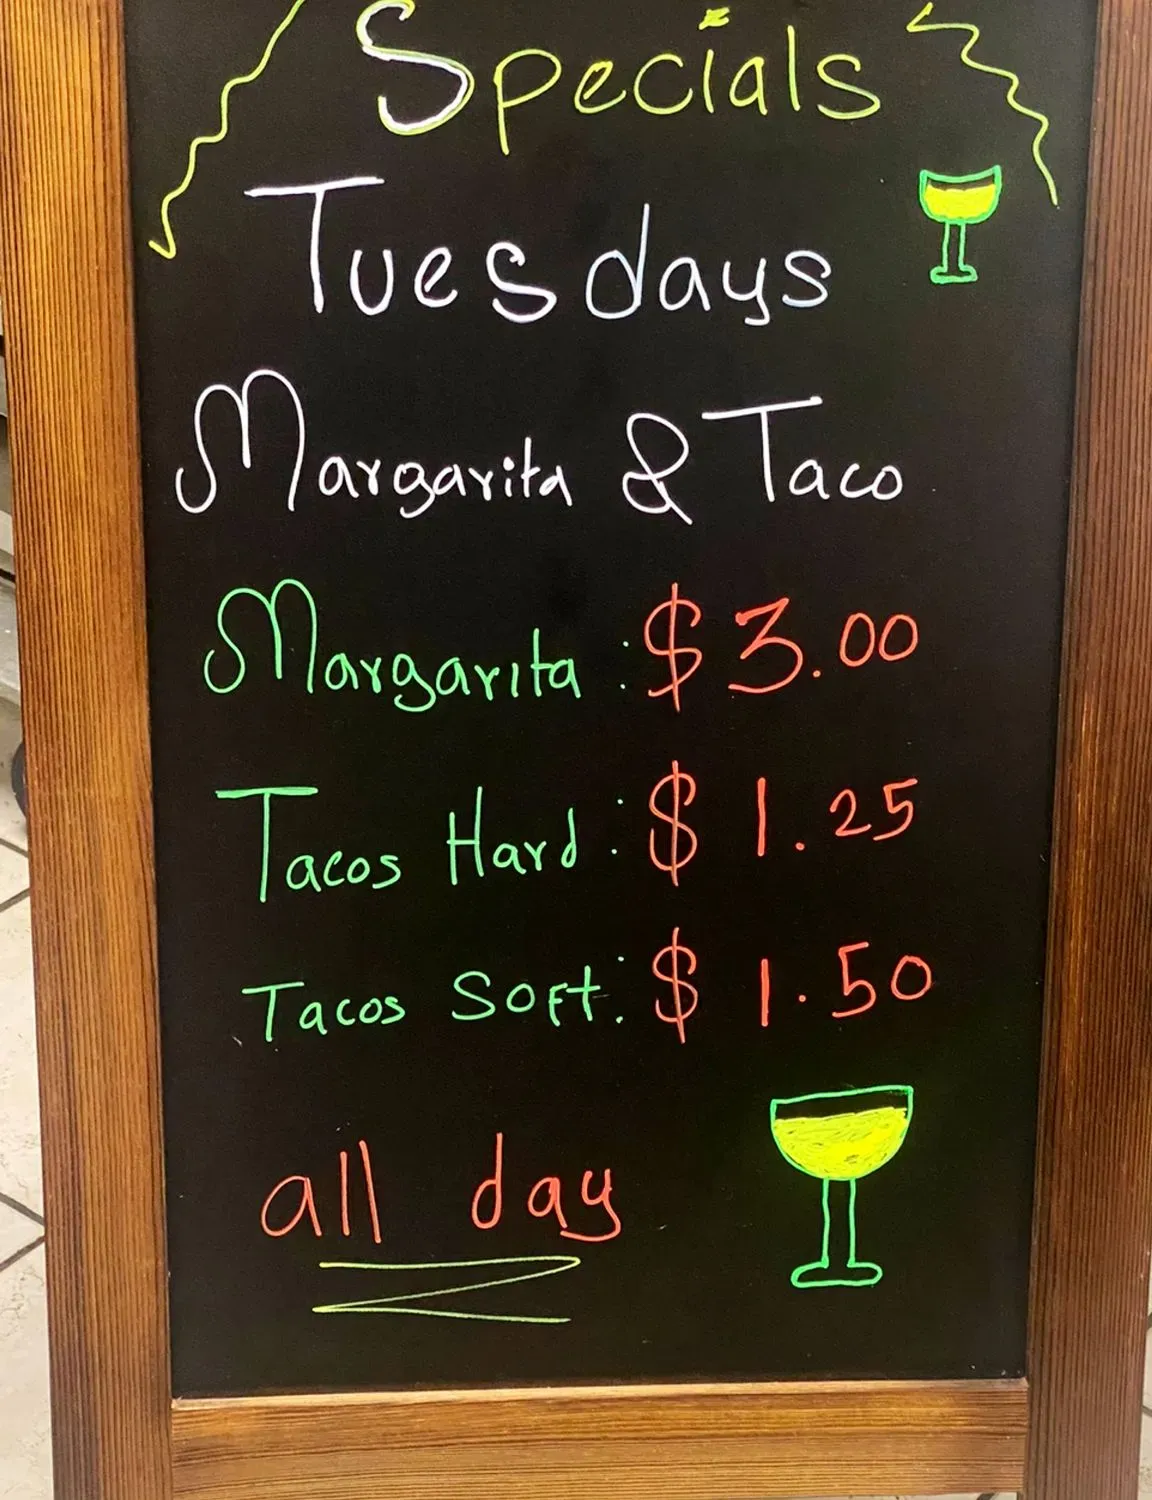 Specials
Tuesdays
Margarita & Taco
Margarita : $ 3.00
Tacos Hard : $ 1.25
Tacos Soft : $ 1.50
all day